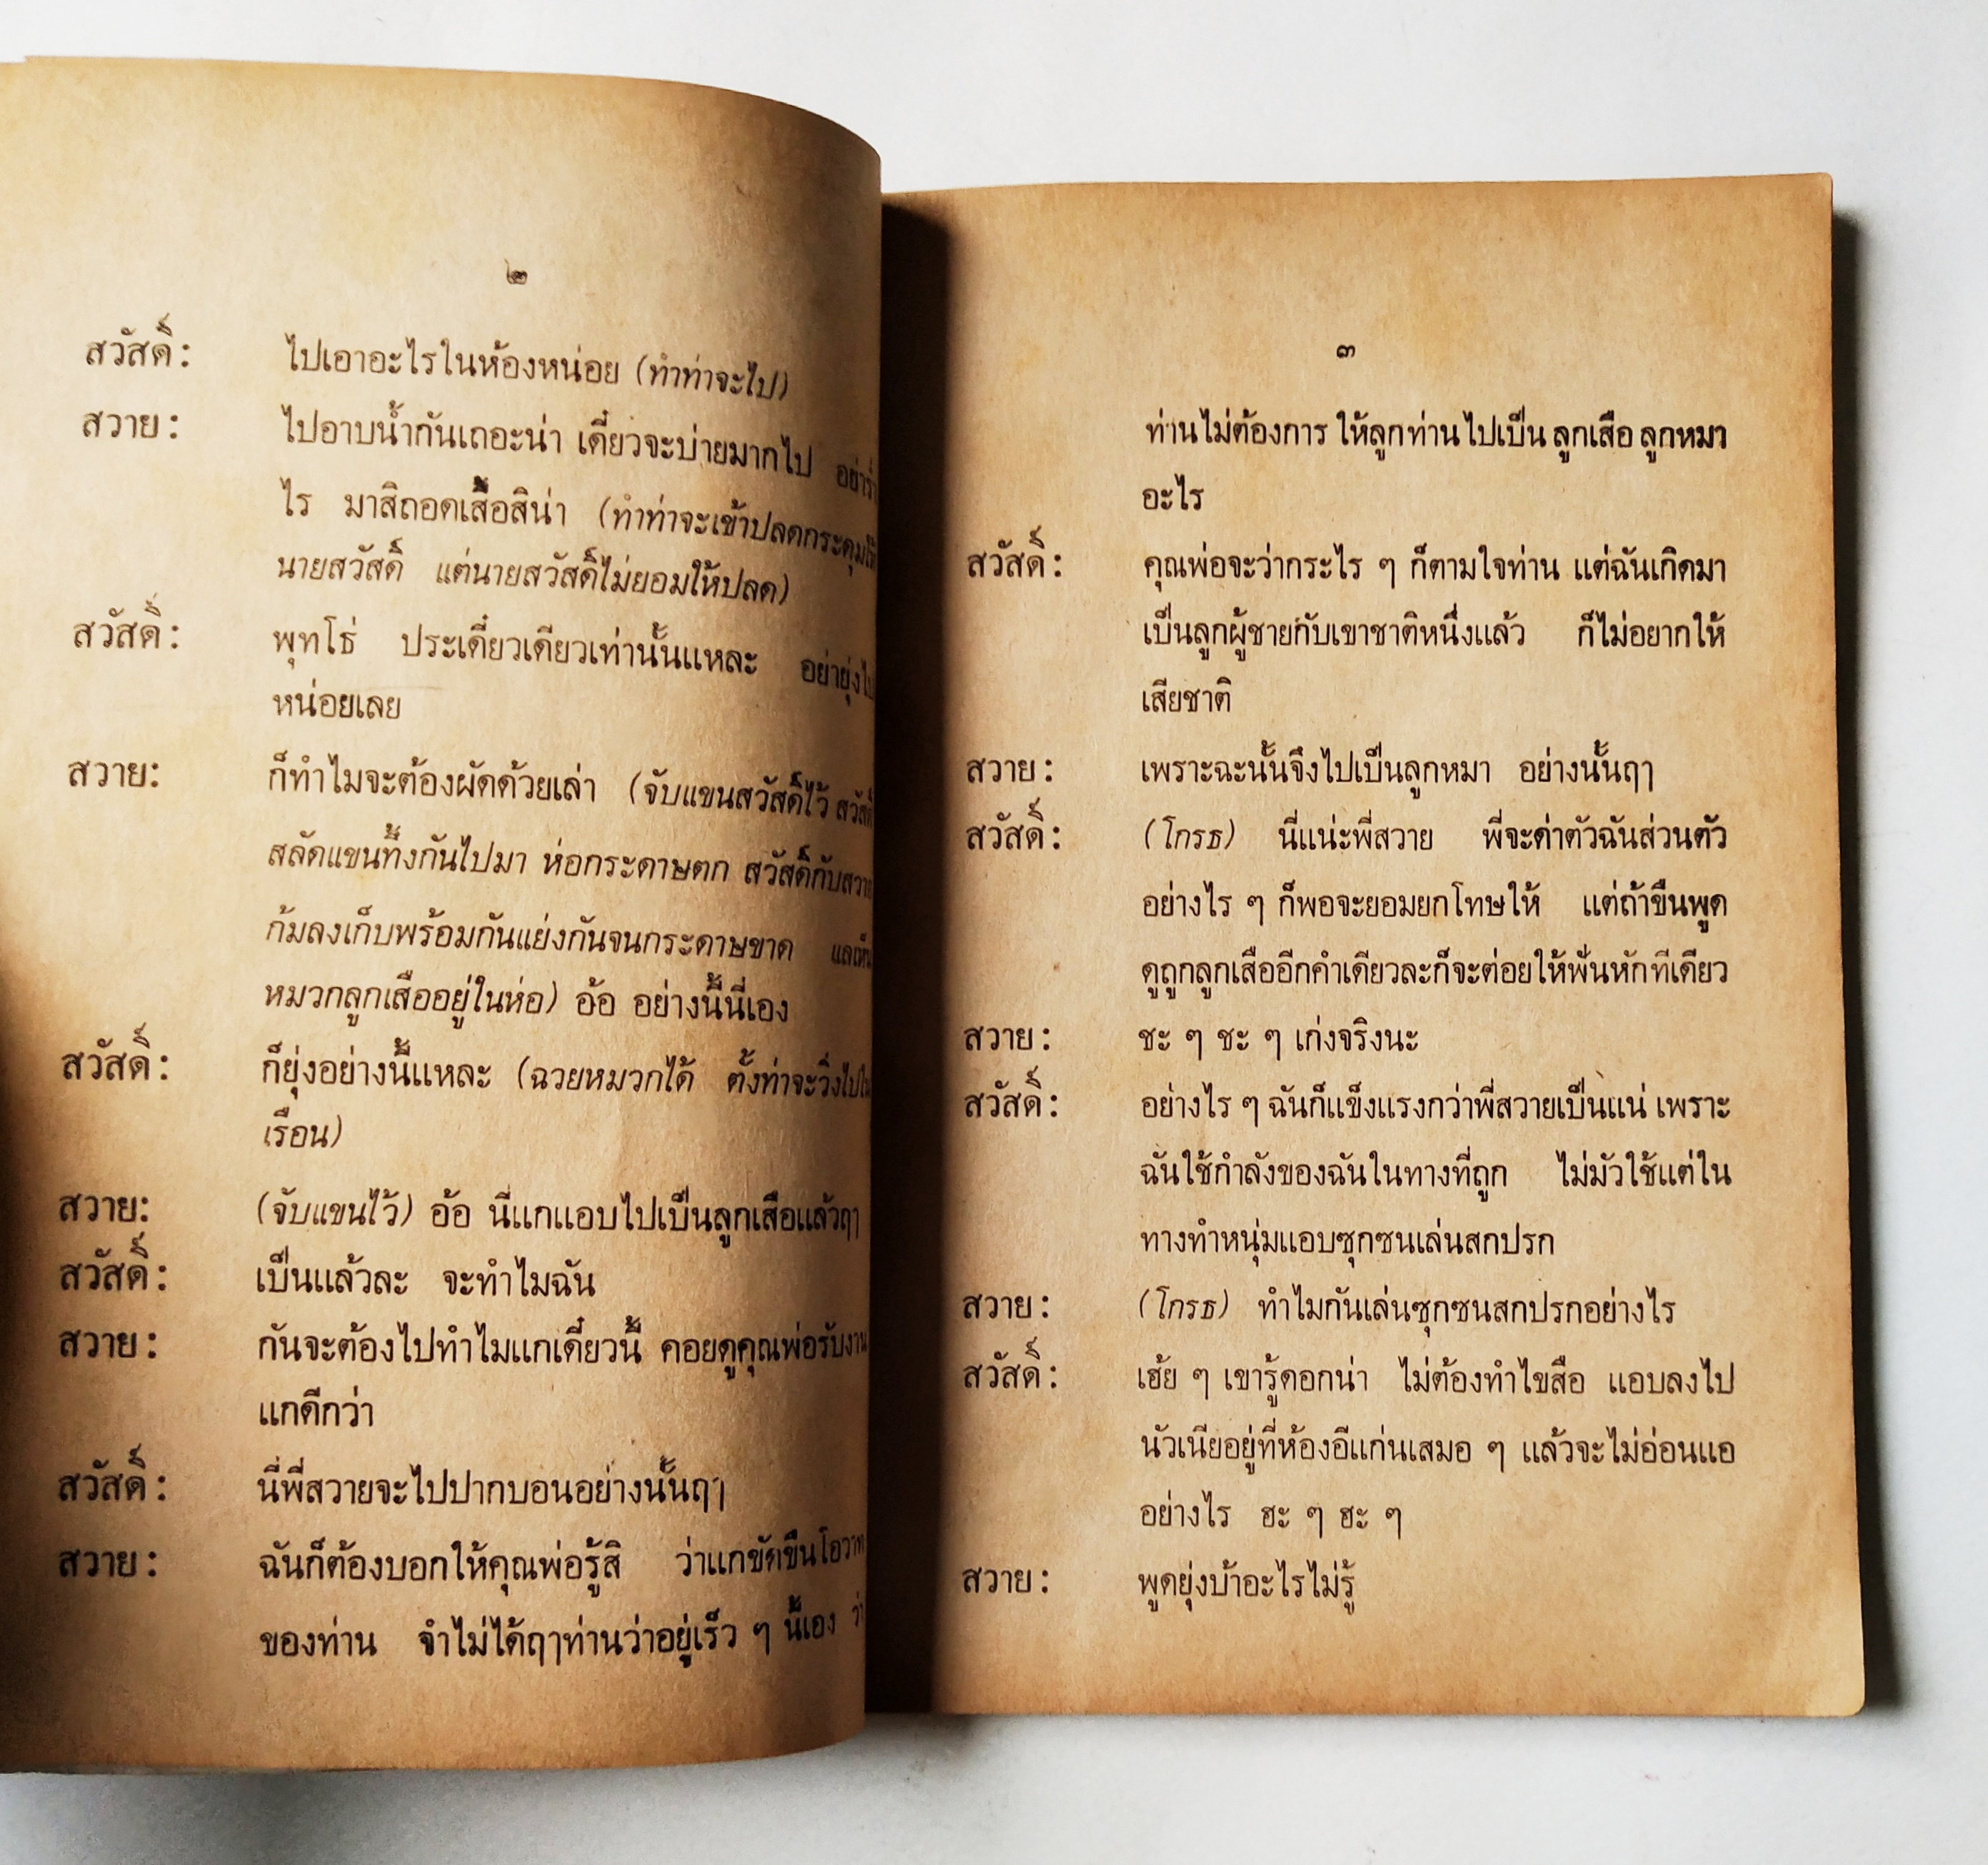 ๒
สวัสดิ์: ไปเอาอะไรในห้องหน่อย (ทำท่าจะไป)
สวาย: ไปอาบน้ำกันเถอะน่า เดี๋ยวจะบ่ายมากไป
ไร มาสิถอดเสื้อสิน่า (ทำท่าจะเข้าปลดกระดุมให้
นายสวัสดิ์ แต่นายสวัสดิ์ไม่ยอมให้ปลด)
สวัสดิ์: พุทโธ่ ประเดี๋ยวเดียวเท่านั้นแหละ อย่ายุ่งไป
หน่อยเลย
สวาย: ก็ทำไมจะต้องผัดด้วยเล่า (จับแขนสวัสดิ์ไว้ สวัสดิ์
สลัดแขนทึ้งกันไปมา ห่อกระดาษตก สวัสดิ์กับสวาย
ก้มลงเก็บพร้อมกันแย่งกันจนกระดาษขาด แลเห็น
หมวกลูกเสืออยู่ในห่อ) อ้อ อย่างนี้นี่เอง
สวัสดิ์: ก็ยุ่งอย่างนี้แหละ (ฉวยหมวกได้ ตั้งท่าจะวิ่งไปใน
เรือน)
สวาย: (จับแขนไว้) อ้อ นี่แกแอบไปเป็นลูกเสือแล้วฤๅ
สวัสดิ์: เป็นแล้วละ จะทำไมฉัน
สวาย: กันจะต้องไปทำไมแกเดี๋ยวนี้ คอยดูคุณพ่อรับงาน
แกดีกว่า
สวัสดิ์: นี่พี่สวายจะไปปากบอนอย่างนั้นฤๅ
สวาย: ฉันก็ต้องบอกให้คุณพ่อรู้สิ ว่าแกขัดขืนโอวาท
ของท่าน จำไม่ได้ฤๅท่านว่าอยู่เร็ว ๆ นี้เอง ว่า
๓
ท่านไม่ต้องการ ให้ลูกท่านไปเป็น ลูกเสือ ลูกหมา
อะไร
สวัสดิ์: คุณพ่อจะว่ากระไร ๆ ก็ตามใจท่าน แต่ฉันเกิดมา
เป็นลูกผู้ชายกับเขาชาติหนึ่งแล้ว ก็ไม่อยากให้
เสียชาติ
สวาย: เพราะฉะนั้นจึงไปเป็นลูกหมา อย่างนั้นฤๅ
สวัสดิ์: (โกรธ) นี่แน่ะพี่สวาย พี่จะด่าตัวฉันส่วนตัว
อย่างไร ๆ ก็พอจะยอมยกโทษให้ แต่ถ้าขืนพูด
ดูถูกลูกเสืออีกคำเดียวละก็จะต่อยให้ฟันหักทีเดียว
สวาย: ชะ ๆ ชะ ๆ เก่งจริงนะ
สวัสดิ์: อย่างไร ๆ ฉันก็แข็งแรงกว่าพี่สวายเป็นแน่ เพราะ
ฉันใช้กำลังของฉันในทางที่ถูก ไม่มัวใช้แต่ใน
ทางทำหนุ่มแอบซุกซนเล่นสกปรก
สวาย: (โกรธ) ทำไมกันเล่นซุกซนสกปรกอย่างไร
สวัสดิ์: เฮ้ย ๆ เขารู้ดอกน่า ไม่ต้องทำไขสือ แอบลงไป
นัวเนียอยู่ที่ห้องอีแก่นเสมอ ๆ แล้วจะไม่อ่อนแอ
อย่างไร ฮะ ๆ ฮะ ๆ
สวาย: พูดยุ่งบ้าอะไรไม่รู้